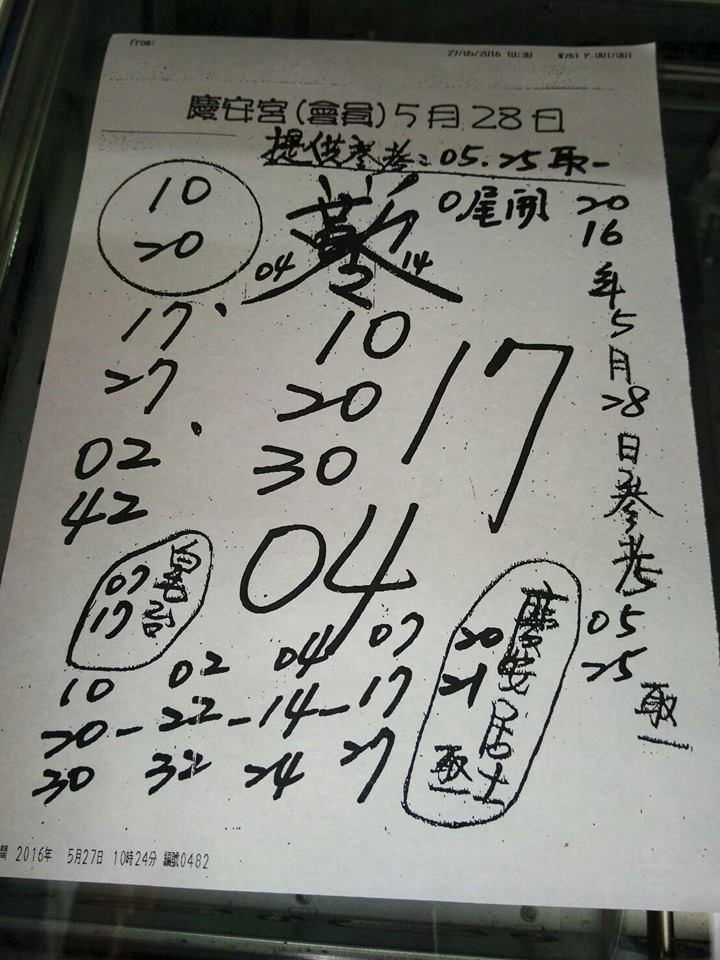 from:
27/05/2016 10:30
P.001/001
慶安宮(會員)5月28日
提供參考:05.25取一
10
20
0尾開
04
2
14
17
27
10
20
30
17
02
42
04
07
17
10 02 04 07
20-22-14-17
30 32 24 27
慶安居士
20
21
取一
2016年5月28日參考
05
25
取一
間 2016年 5月27日 10時24分 編號0482